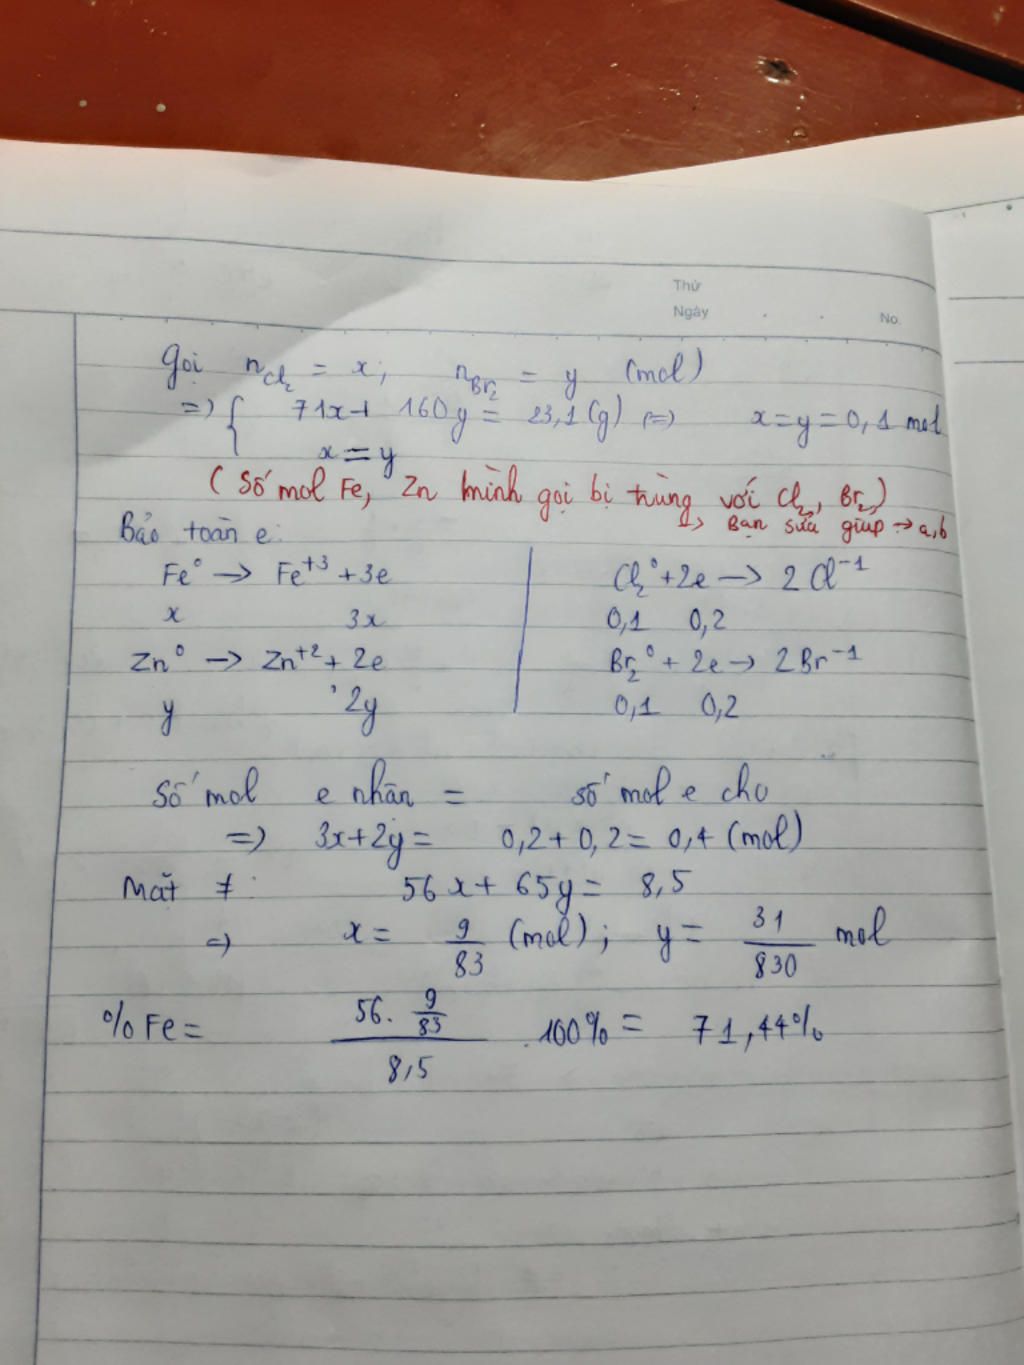 Thứ
Ngày
No.
Gọi n_Cl₂ = x; n_Br₂ = y (mol)
=> { 71x + 160y = 23,1 (g) <=> x = y = 0,1 mol
x = y
(Số mol Fe, Zn mình gọi bị trùng với Cl₂, Br₂)
↳ Bạn sửa giúp → a,b
Bảo toàn e:
Fe⁰ → Fe⁺³ + 3e Cl₂⁰ + 2e → 2Cl⁻¹
x 3x 0,1 0,2
Zn⁰ → Zn⁺² + 2e Br₂⁰ + 2e → 2Br⁻¹
y 2y 0,1 0,2
Số mol e nhân = số mol e cho
=> 3x + 2y = 0,2 + 0,2 = 0,4 (mol)
Mặt ≠: 56x + 65y = 8,5
=> x = 9/83 (mol); y = 31/830 mol
% Fe = (56 . 9/83)/8,5 . 100% = 71,44%